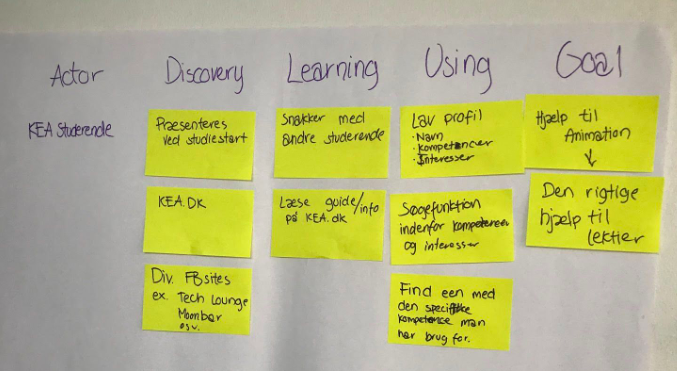 Actor
Discovery
Learning
Using
Goal
KEA Studerende
Præsenteres
ved studiestart
KEA.DK
Div. FB sites
ex. Tech Lounge
Moonbar
osv.
Snakker med
andre studerende
Læse guide/info
på KEA.dk
Lav profil
· Navn
· Kompetencer
· Interesser
Søgefunktion
indenfor kompetencer
og interesser
Find een med
den specifikke
kompetence man
har brug for.
Hjælp til
Animation
↓
Den rigtige
hjælp til
lektier